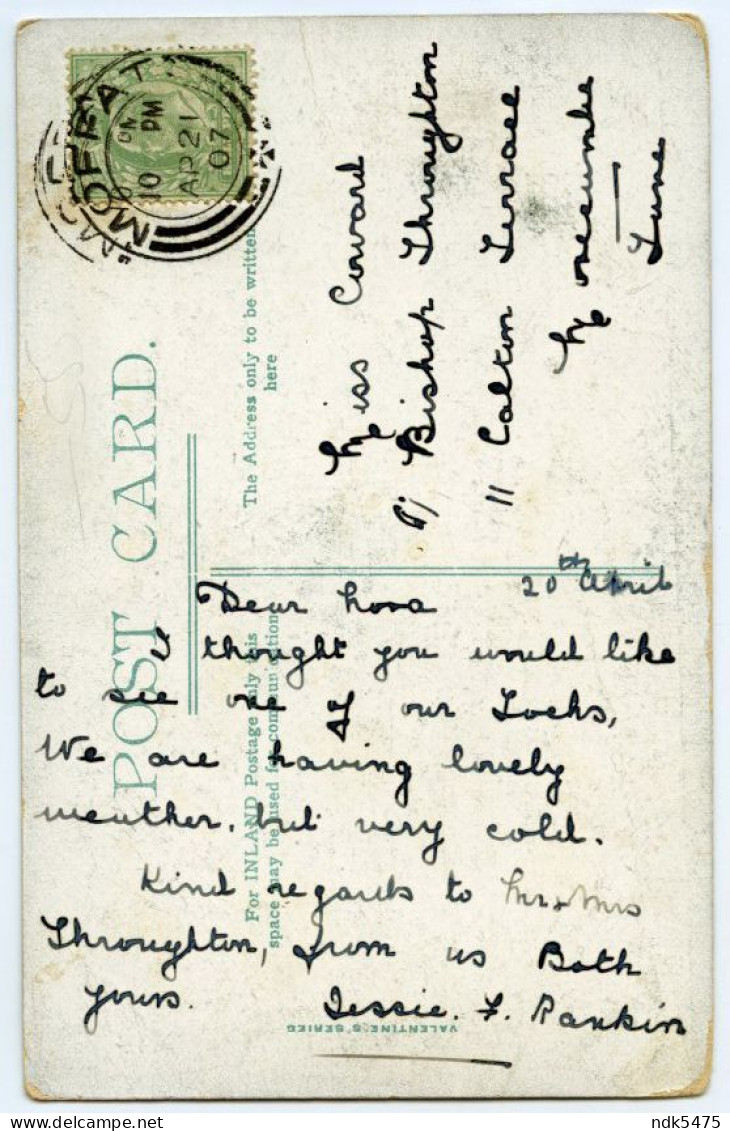 MOFFAT
10 PM
AP 21
07
POST CARD.
The Address only to be written
here
For INLAND Postage only this
space may be used for communication
Miss Coward
Bishop Throughton
11 Calton Terrace
Morecambe
Lune
20th April
Dear Lora
I thought you would like
to see one of our Lochs,
We are having lovely
weather, but very cold.
Kind regards to Mr & Mrs
Throughton, from us Both
yours. Jessie. F. Rankin
VALENTINE'S SERIES
ndk5475